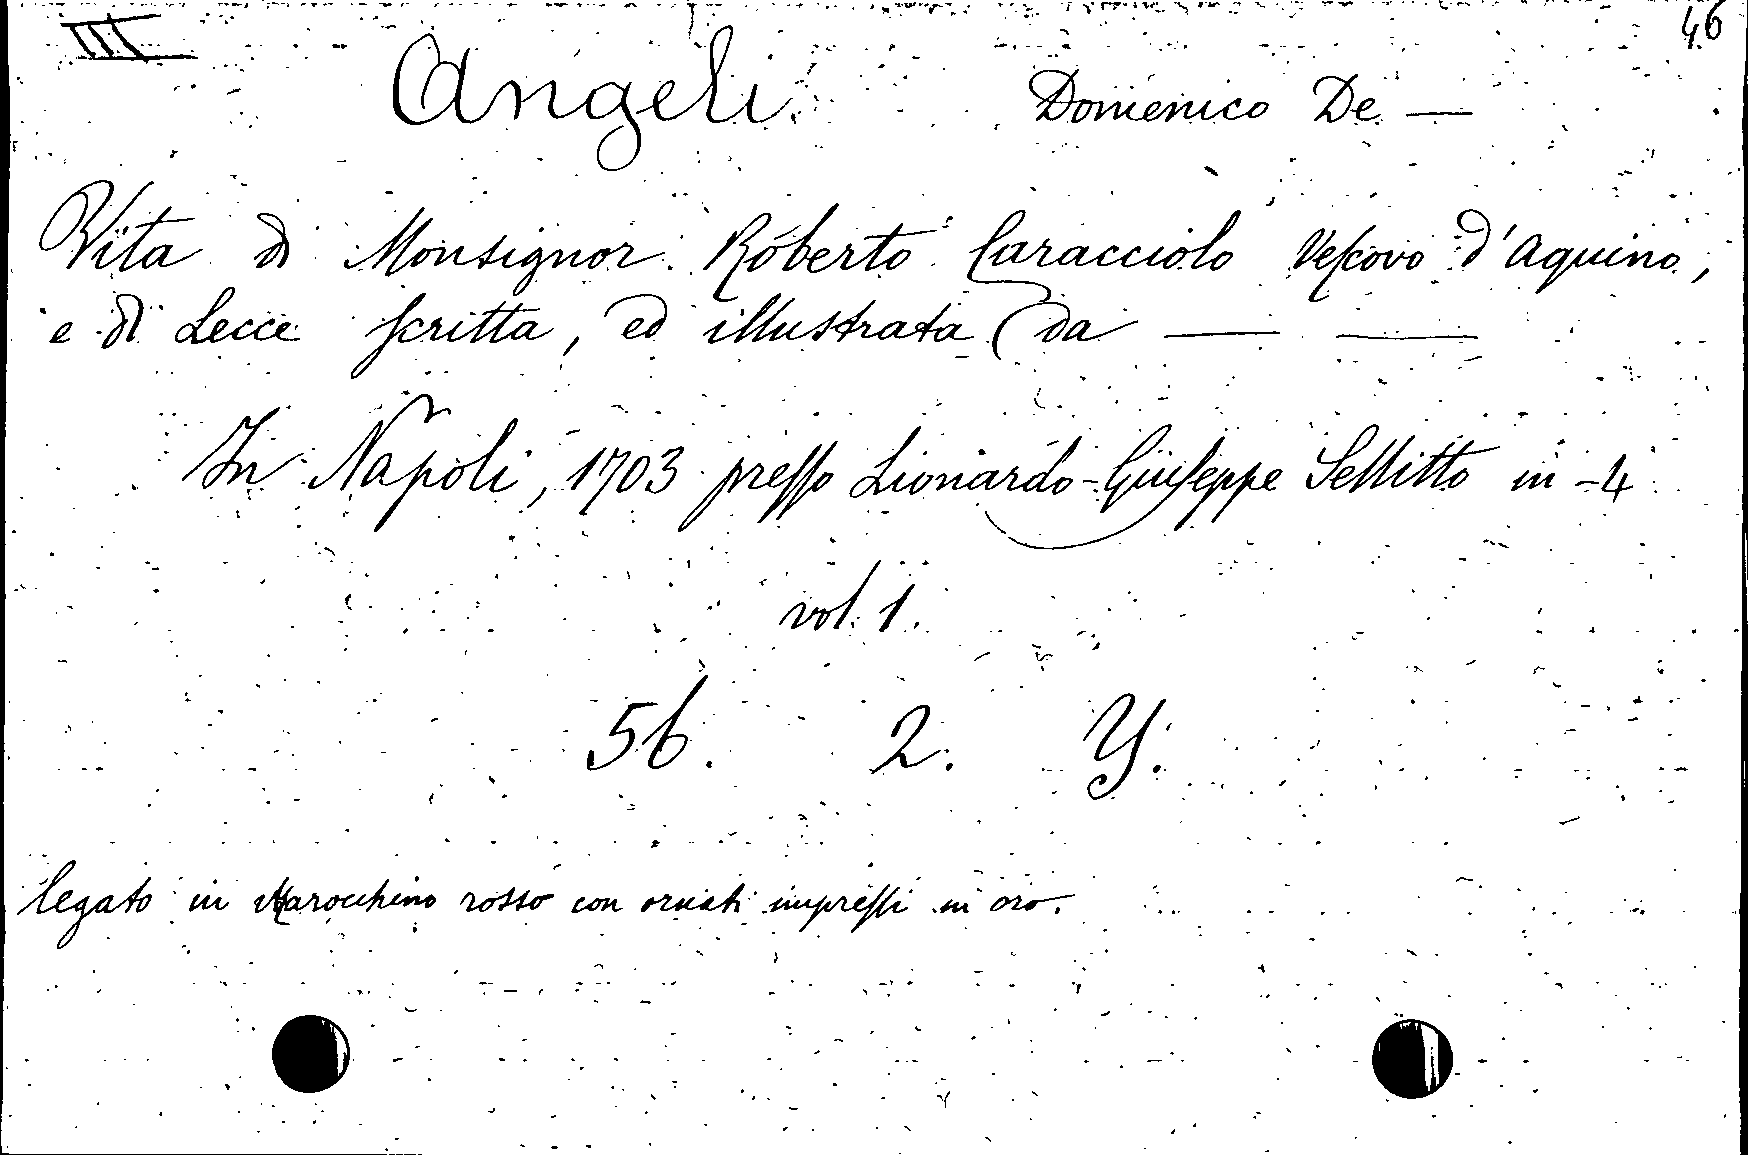 III 46
Angeli. Domenico De —
Vita di Monsignor Roberto Caracciolo Veſcovo d'Aquino,
e di Lecce ſcritta, ed illustrata da — —
In Napoli, 1703 preſſo Lionardo-Giuſeppe Sellitto in -4
vol. 1.
56. 2. Y.
legato in Marocchino rosso con ornati impreſſi in oro.